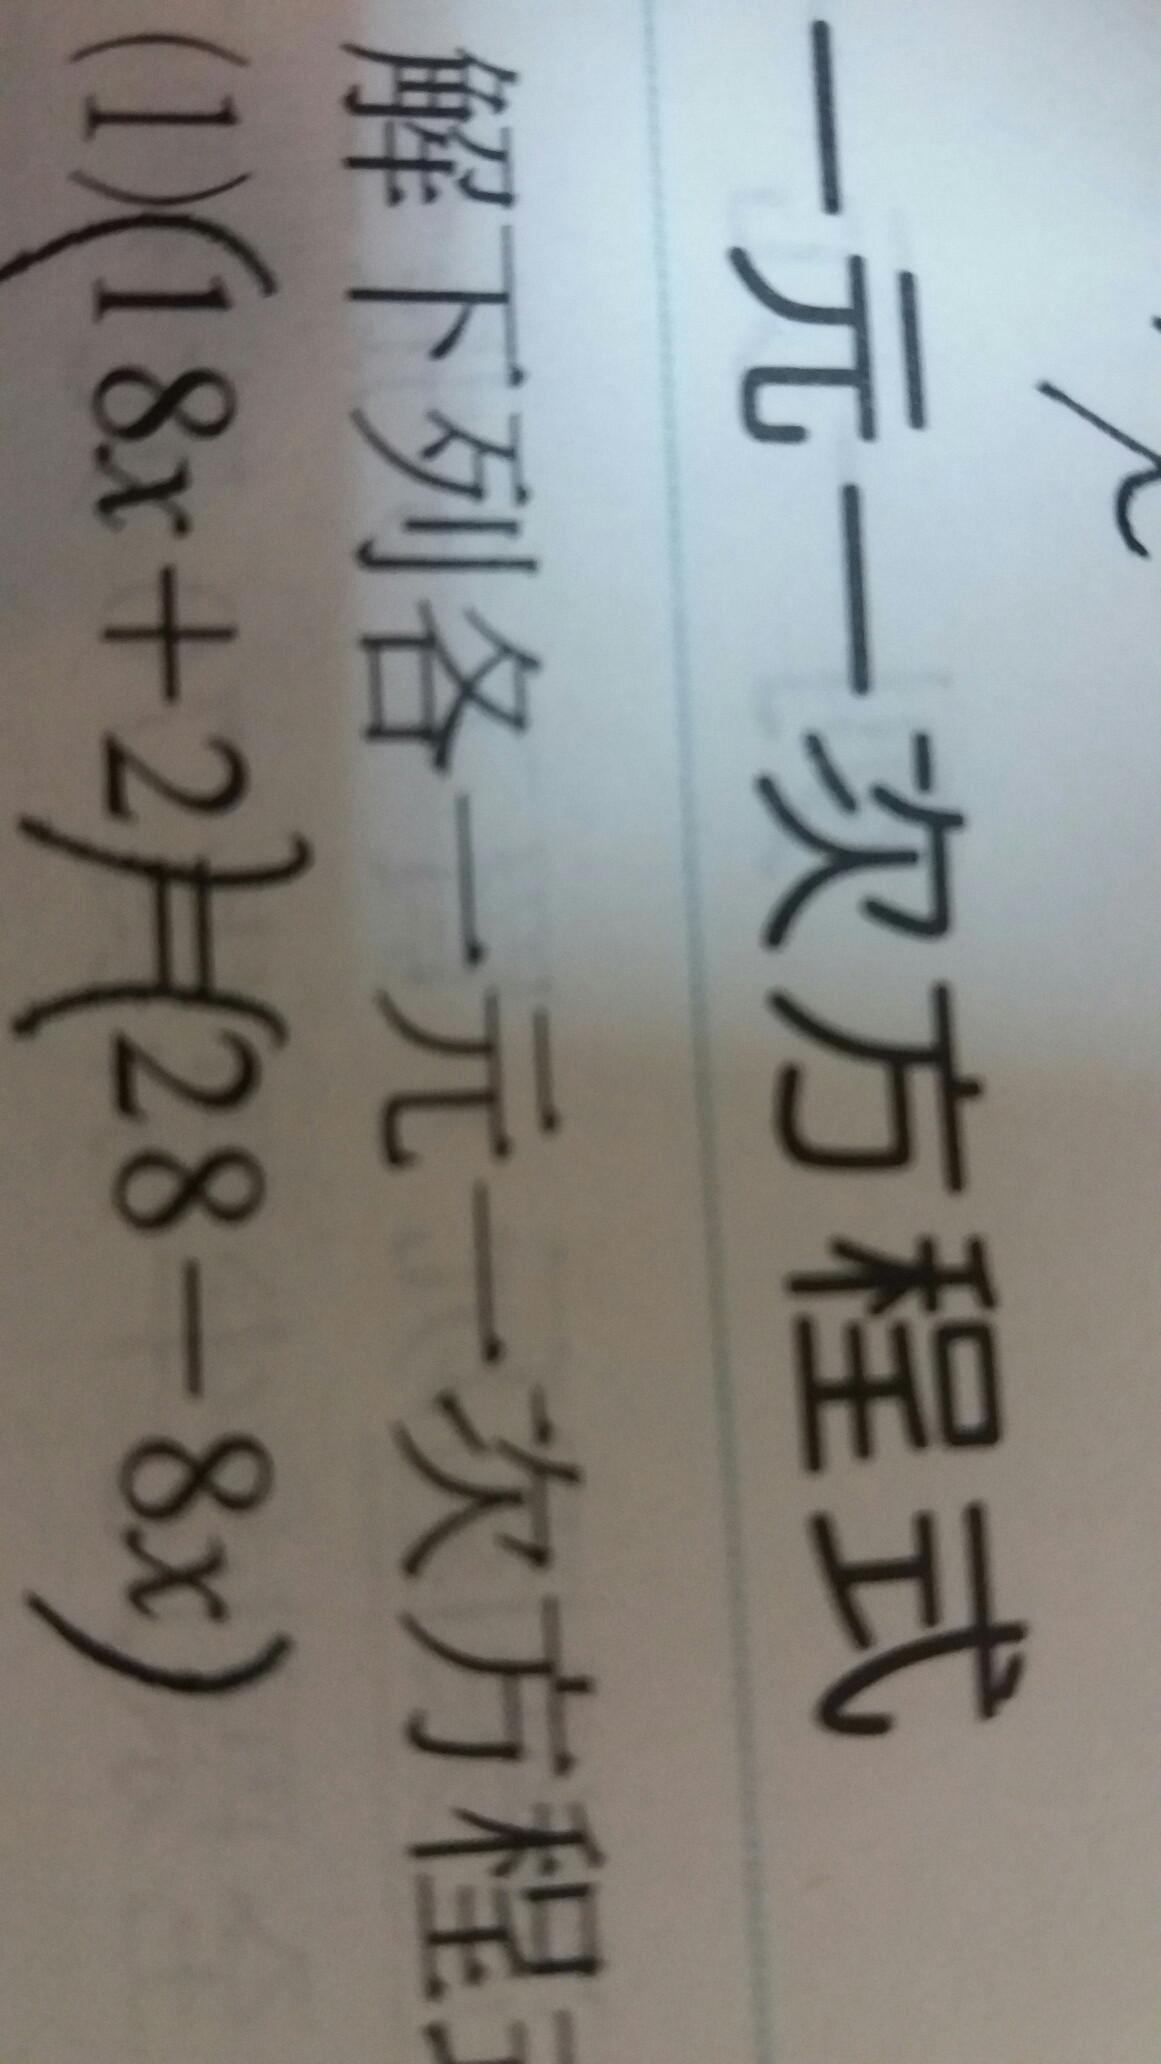 一元一次方程式
解下列各一元一次方程式
(1)(18x+2)=(28-8x)